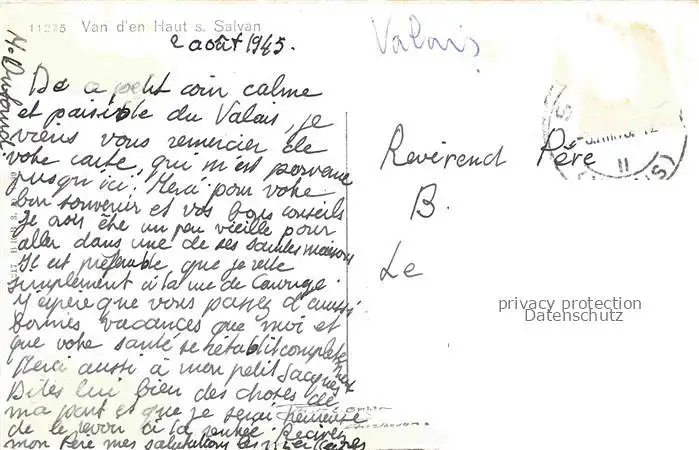 11275 Van d'en Haut s. Salvan
2 août 1945.
Valais
De ce petit coin calme
et paisible du Valais, je
viens vous remercier de
votre carte, qui m'est parvenue
jusqu'ici. Merci pour votre
bon souvenir et vos bons conseils
Je crois être un peu vieille pour
aller dans une de ses saintes maisons
Il est préférable que je reste
simplement à la rue de Carouge.
J'espère que vous passez d'aussi
bonnes vacances que moi et
que votre santé se rétablit complètement
Merci aussi à mon petit Jacques
Dites lui bien des choses de
ma part et que je serai heureuse
de le revoir à la rentrée. Recevez
mon Père mes salutations les meilleures
Révérend Père
B.
Le
II
privacy protection
Datenschutz